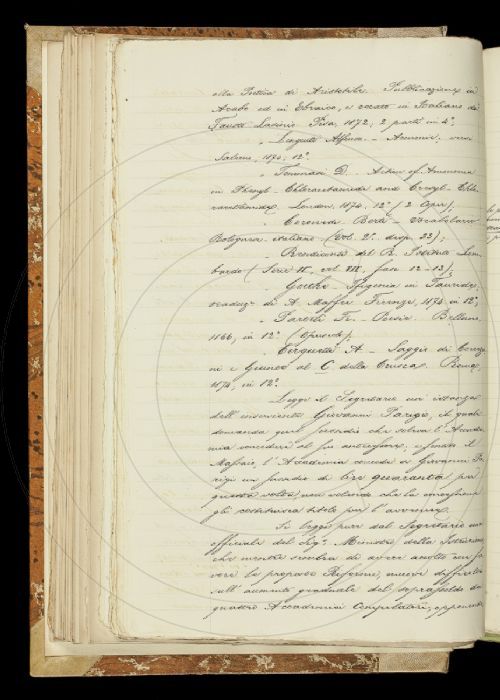 alla Poetica di Aristotile. Pubblicazione in
Arabo ed in Ebraico, e recato in Italiano da
Fausto Lasinio Pisa, 1872; 2 parti in 4°.
Armonie, versi
1874; 12°.
" Tommasi D. - Action of Ammonia
on Phenyl-Chloracetamide and Cresyl-Chlo-
racetamide. London, 1874, 12° (2 Opus.).
" Coronedi Berti - Vocabolario
Bolognese italiano. (Vol. 2°. disp. 23);
" Rendiconti del R. Istituto Lom-
bardo (Serie II, vol. VII, fasc. 12-13);
" Goethe - Ifigenia in Tauride;
traduz. di A. Maffei Firenze, 1874 in 12°;
" Poesie. Belluno,
1866, in 12°. (Opuscolo);
" Cerquetti A. - Saggio di Correzio-
ni e Giunte al C. della Crusca.
1874, in 12°.
Legge il Segretario un' istanza
dell' inserviente Giovanni Parigi, il quale
domanda
Massaio, l' Accademia concede a Giovanni Pa-
rigi un sussidio di lire quaranta per
questa volta, non volendo che la
gli costituisca titolo per l' avvenire.
Si legge pure dal Segretario una
officiale del Sig.r Ministro della Istruzione
che mentre sembra di avere accolto con fa-
vore le proposte Riforme, muove difficoltà
sull' aumento graduale del soprassoldo ai
quattro Accademici Compilatori, opponendo